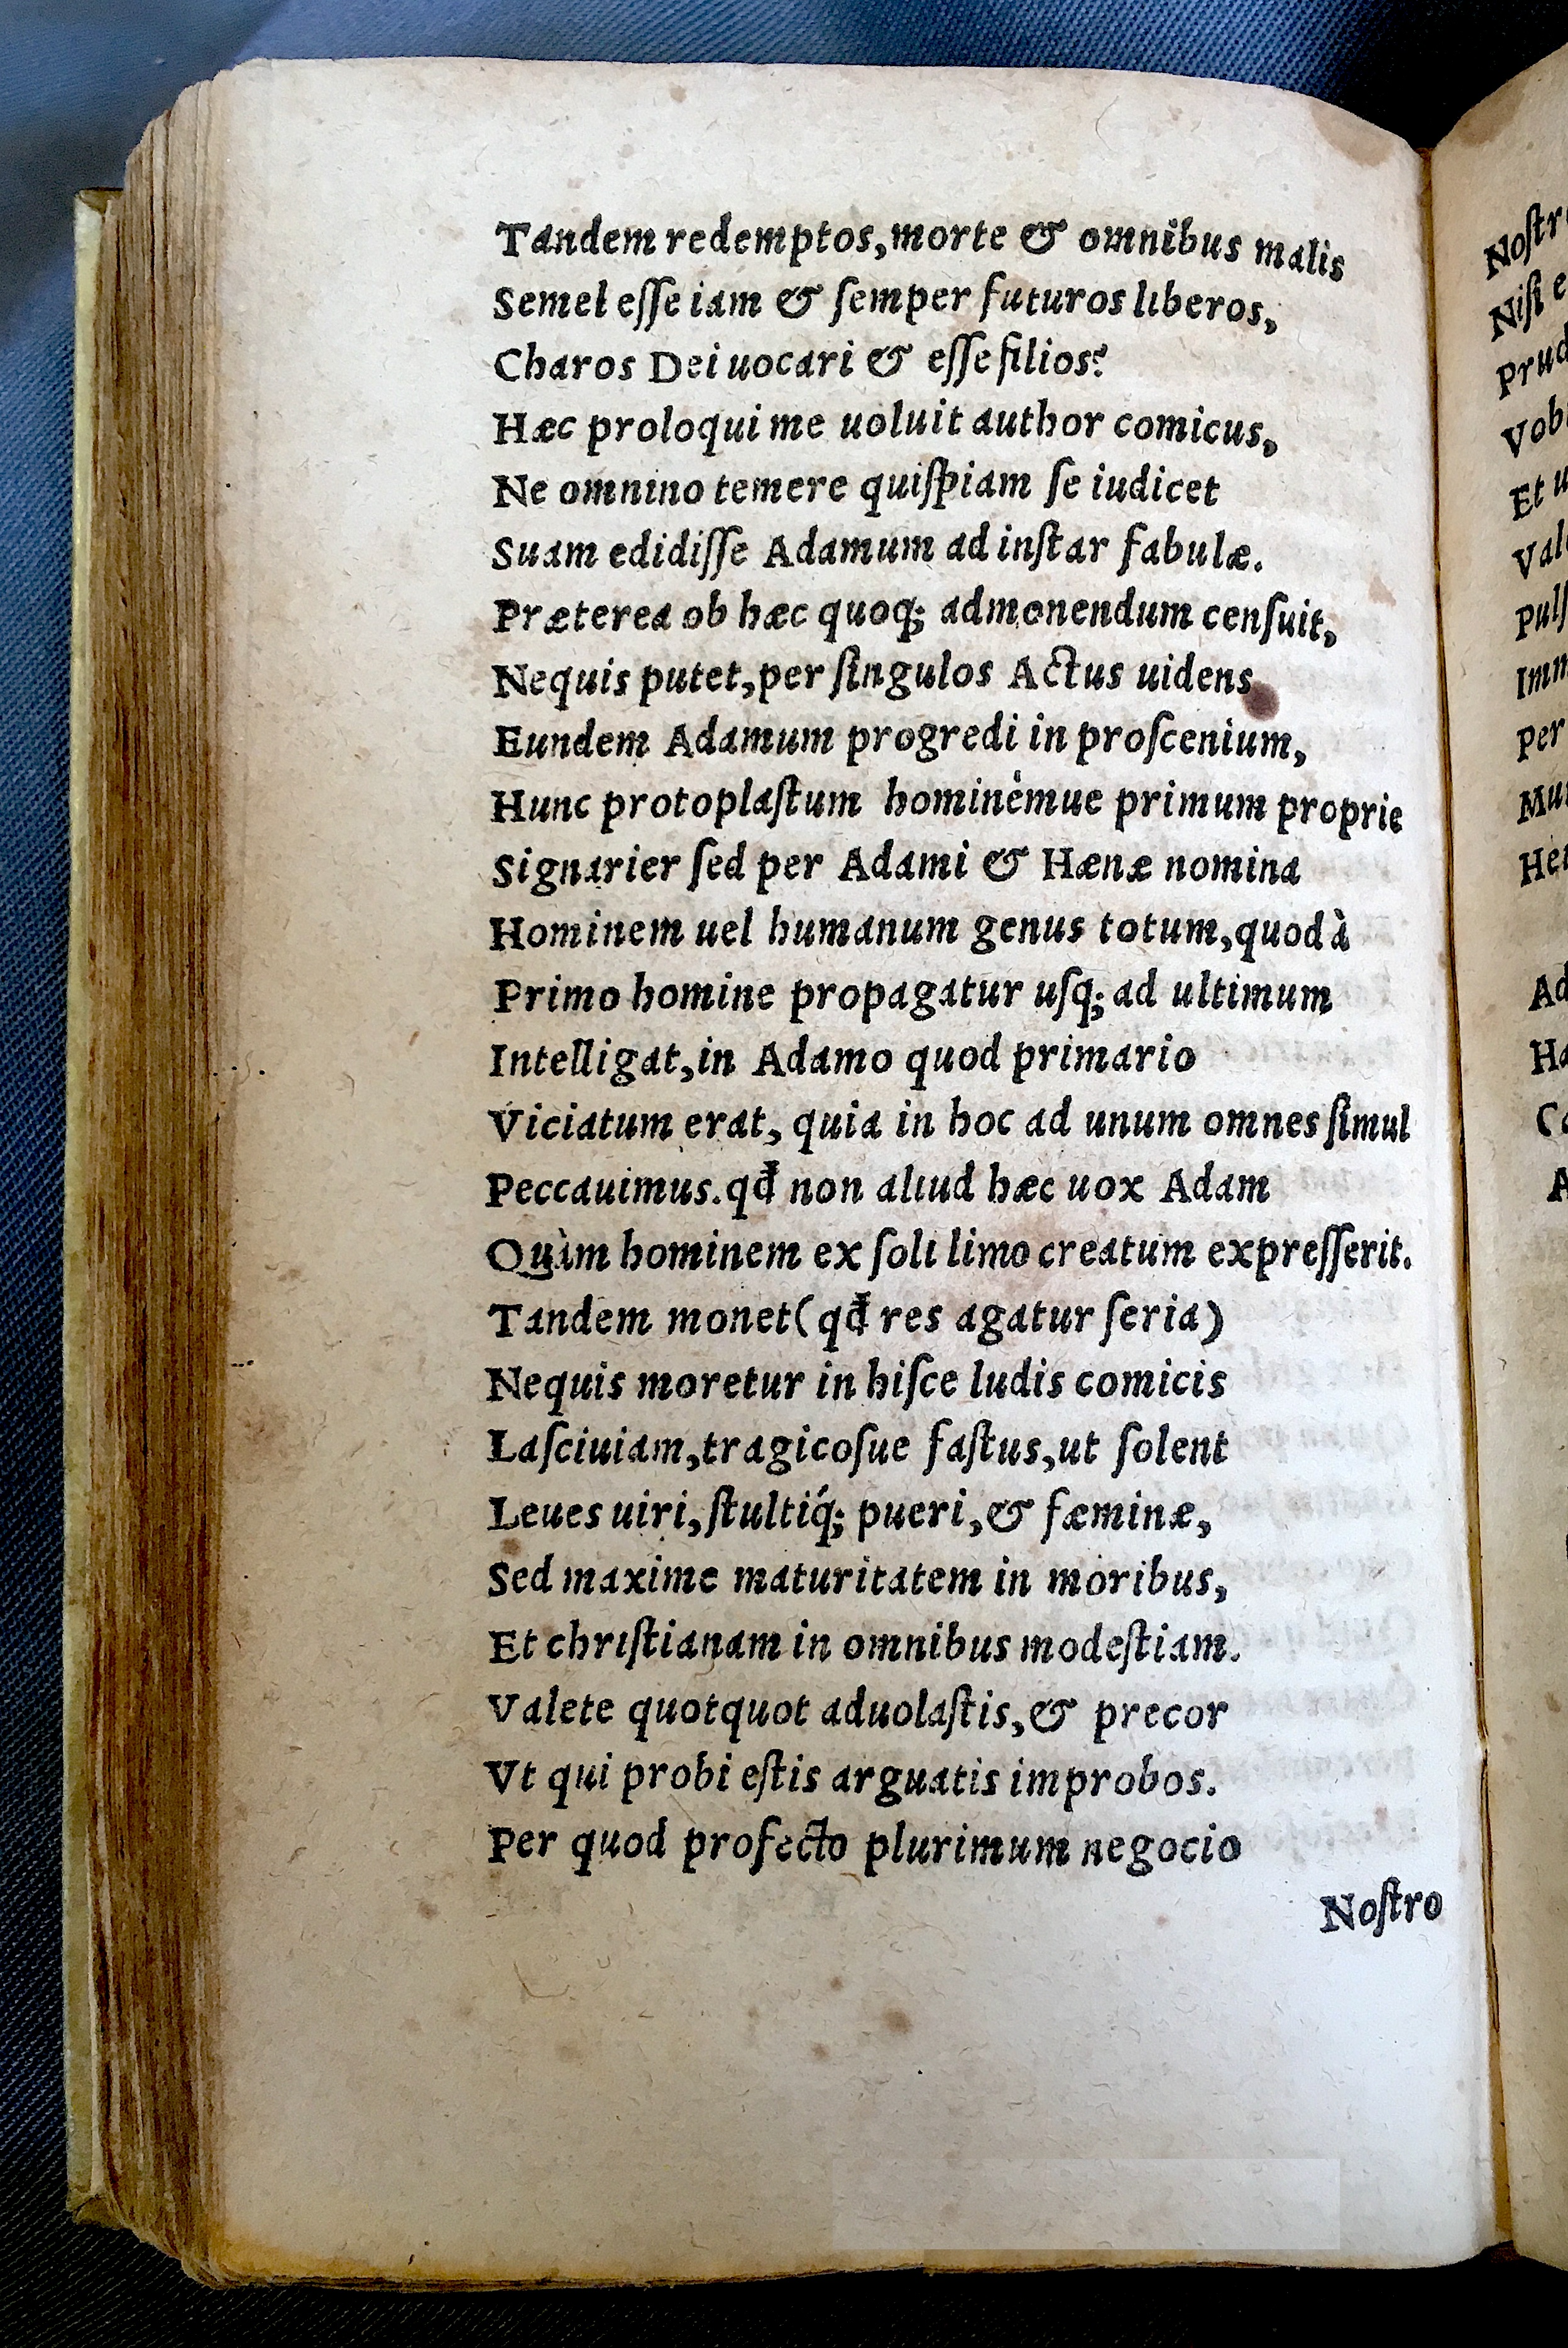 Tandem redemptos, morte & omnibus malis
Semel eſſe iam & ſemper futuros liberos,
Charos Dei uocari & eſſe filios?
Hæc proloqui me uoluit author comicus,
Ne omnino temere quiſpiam ſe iudicet
Suam edidiſſe Adamum ad inſtar fabulæ.
Præterea ob hæc quoq; admonendum cenſuit,
Nequis putet, per ſingulos Actus uidens
Eundem Adamum progredi in proſcenium,
Hunc protoplaſtum hominémue primum proprie
Signarier ſed per Adami & Hænæ nomina
Hominem uel humanum genus totum, quod à
Primo homine propagatur uſq; ad ultimum
Intelligat, in Adamo quod primario
Viciatum erat, quia in hoc ad unum omnes ſimul
Peccauimus. qđ non aliud hæc uox Adam
Quàm hominem ex ſoli limo creatum expreſſerit.
Tandem monet (qđ res agatur ſeria)
Nequis moretur in hiſce ludis comicis
Laſciuiam, tragicoſue faſtus, ut ſolent
Leues uiri, ſtultiq́; pueri, & fæminæ,
Sed maxime maturitatem in moribus,
Et chriſtianam in omnibus modeſtiam.
Valete quotquot aduolaſtis, & precor
Vt qui probi eſtis arguatis improbos.
Per quod profecto plurimum negocio
Noſtro